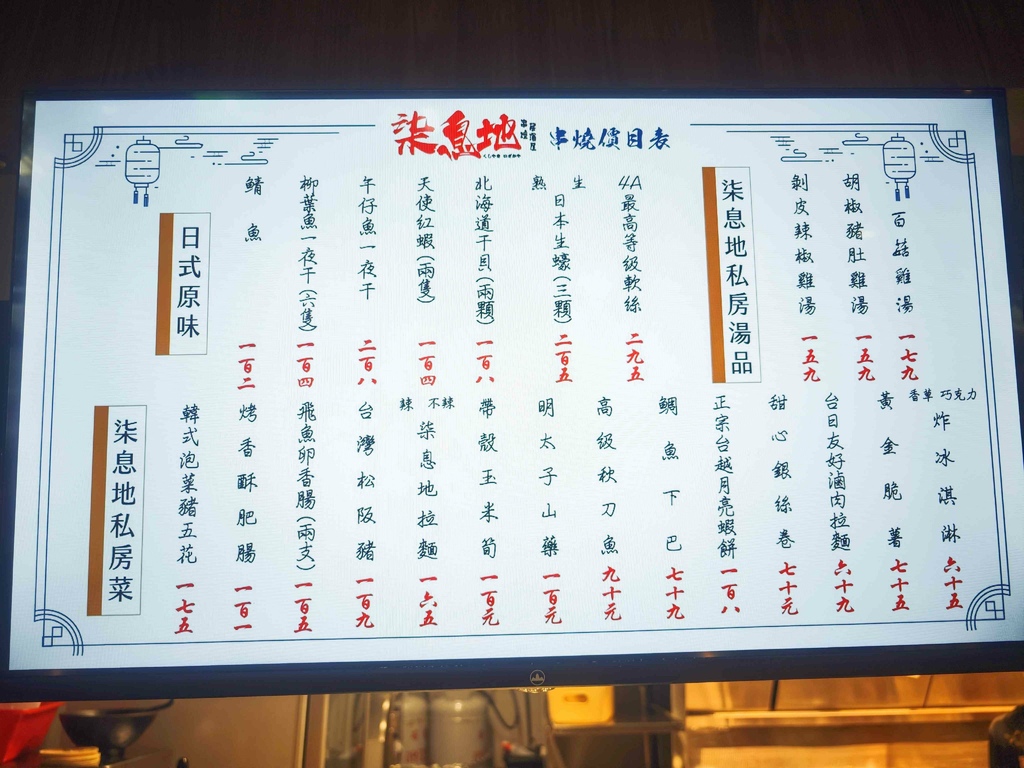 柒息地 串燒 居酒屋
くしやき いざかや
串燒價目表
柒息地私房湯品
百菇雞湯 一七九
胡椒豬肚雞湯 一五九
剝皮辣椒雞湯 一五九
4A最高等級軟絲 二九五
生 熟 日本生蠔(三顆) 二百五
北海道干貝(兩顆) 一百八
天使紅蝦(兩隻) 一百四
午仔魚一夜干 二百八
柳葉魚一夜干(六隻) 一百四
鯖魚 一百二
日式原味
香草 巧克力 炸冰淇淋 六十五
黃金脆薯 七十五
台日友好滷肉拉麵 六十九
甜心銀絲卷 七十元
正宗台越月亮蝦餅 一百八
鯛魚下巴 七十九
高級秋刀魚 九十元
明太子山藥 一百元
帶殼玉米筍 一百元
辣 不辣 柒息地拉麵 一六五
台灣松阪豬 一百九
飛魚卵香腸(兩支) 一百五
烤香酥肥腸 一百一
韓式泡菜豬五花 一七五
柒息地私房菜